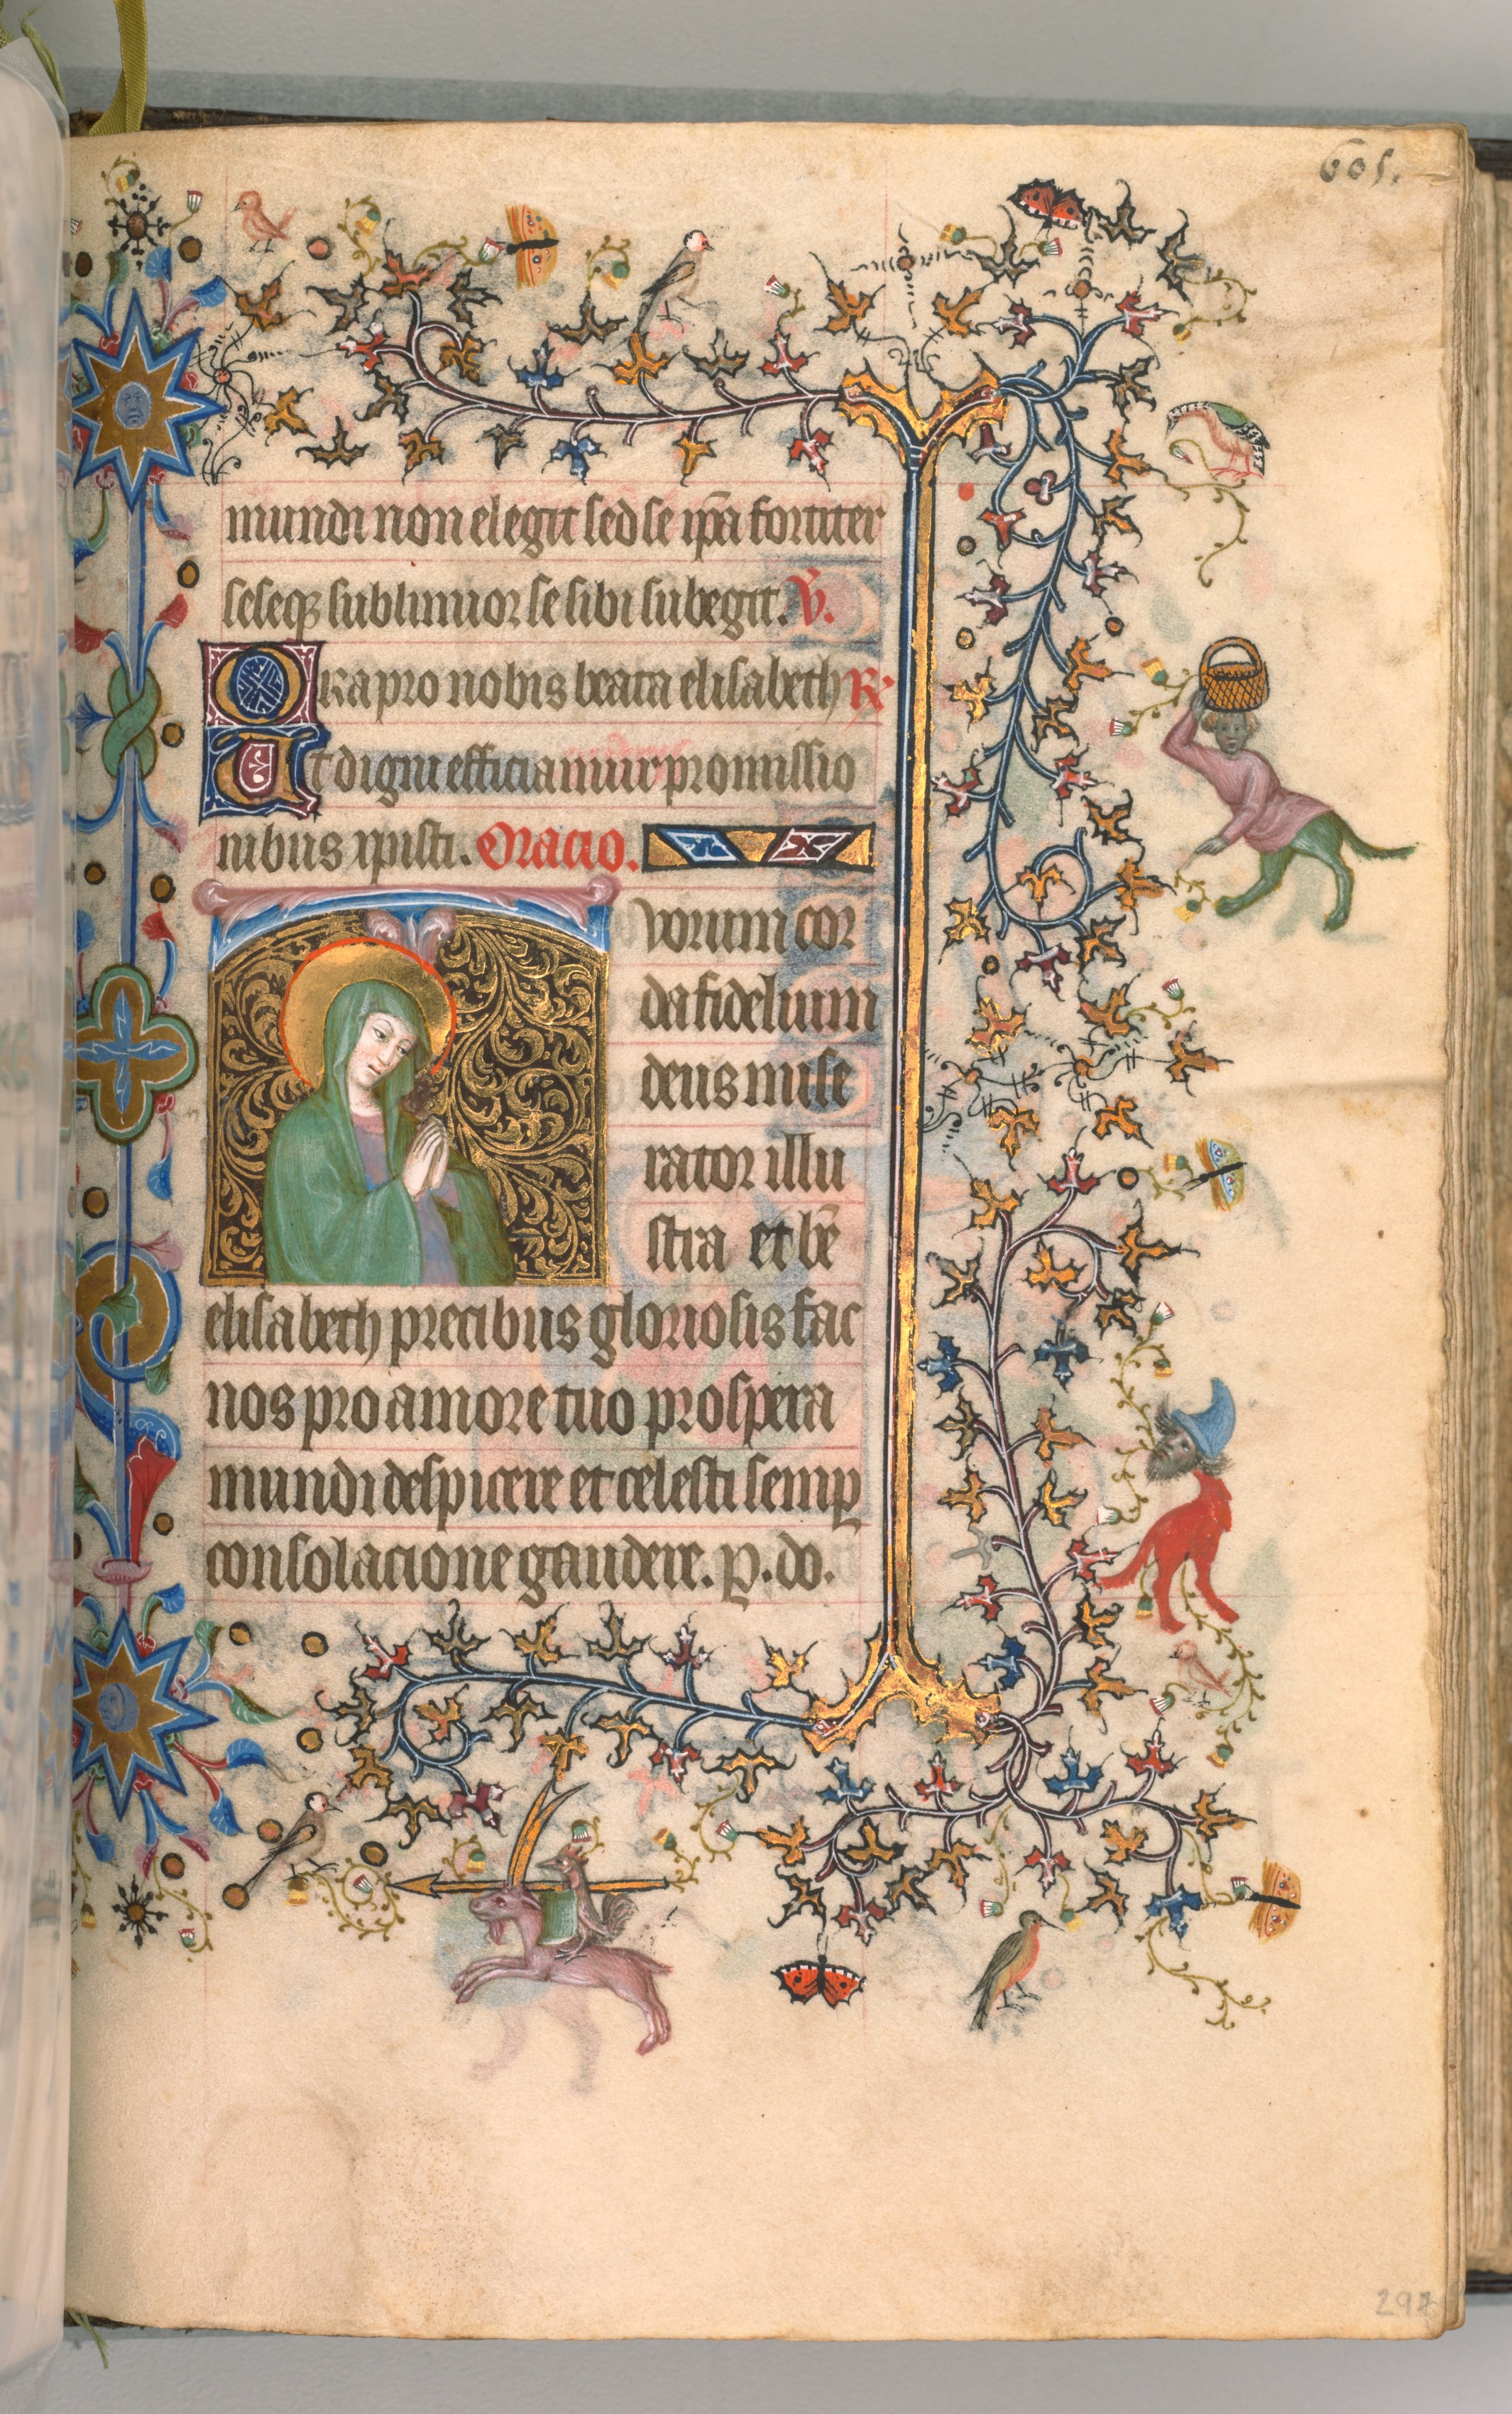 605.
mundi non elegit sed se ip̄a fortiter
seseqꝫ sublimior se sibi subegit. V̄.
Ora pro nobis beata elisabeth R̄
Ut digni efficiamur promissio
nibus xpisti. Oracio.
vorum cor
da fidelium
deus mise
rator illu
stra et bē
elisabeth precibus gloriosis fac
nos pro amore tuo prospera
mundi despicere et celesti semꝑ
consolacione gaudere. P. do.
297